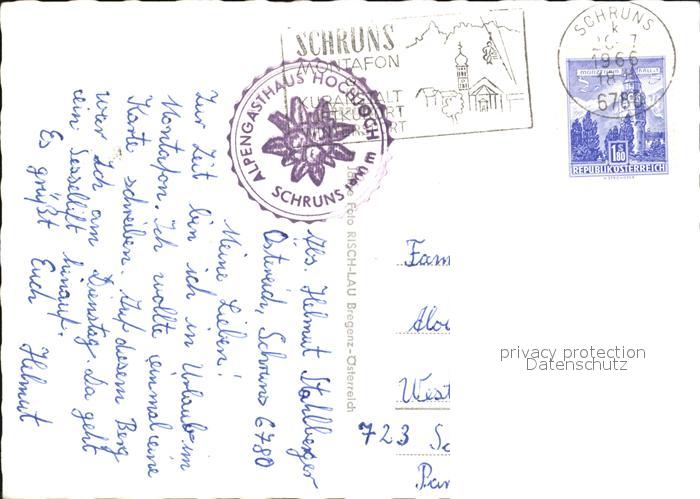 SCHRUNS
MONTAFON
KURANSTALT
ALPENGASTHAUS HOCHJOCH
SCHRUNS
SCHRUNS
k
1966
6780
MÜNZTURM HALL i.T.
1.80
S
REPUBLIK ÖSTERREICH
Foto RISCH-LAU Bregenz-Österreich
Abs. Helmut Stahlberger
Östereich, Schruns 6780
Meine Lieben!
Zur Zeit bin ich in Urlaub im
Montafon. Ich wollte einmal eine
Karte schreiben. Auf diesem Berg
war ich am Dienstag. Da geht
ein Sessellift hinauf.
Es grüßt Euch Helmut
Fam
West
723 Sc
privacy protection
Datenschutz